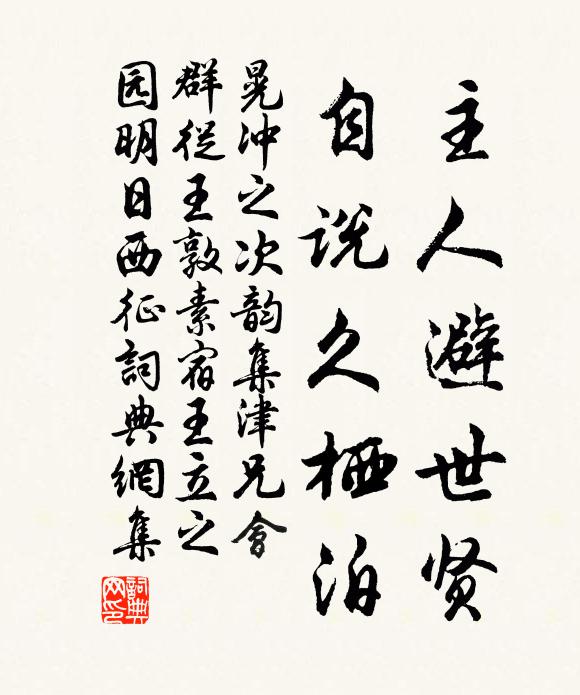 主人避世贤
自说久栖泊
晃冲之次韵集津兄會
群從王敦素宿王立之
园明日西征詞典網集
詞典網印